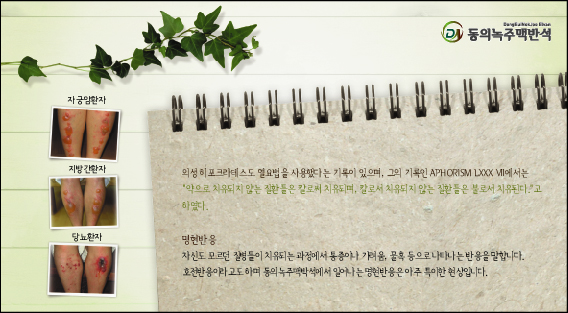 DongEuiNokJoo Elvan
동의녹주맥반석
자궁암환자
지방간환자
당뇨환자
의성 히포크라테스도 열요법을 사용했다는 기록이 있으며, 그의 기록인 APHORISM LXXX VII에서는
"약으로 치유되지 않는 질환들은 칼로써 치유되며, 칼로서 치유되지 않는 질환들은 불로서 치유된다."고
하였다.
명현반응
자신도 모르던 질병들이 치유되는 과정에서 통증이나 가려움, 물혹 등으로 나타나는 반응을 말합니다.
호전반응이라고도 하며 동의녹주맥반석에서 일어나는 명현반응은 아주 특이한 현상입니다.